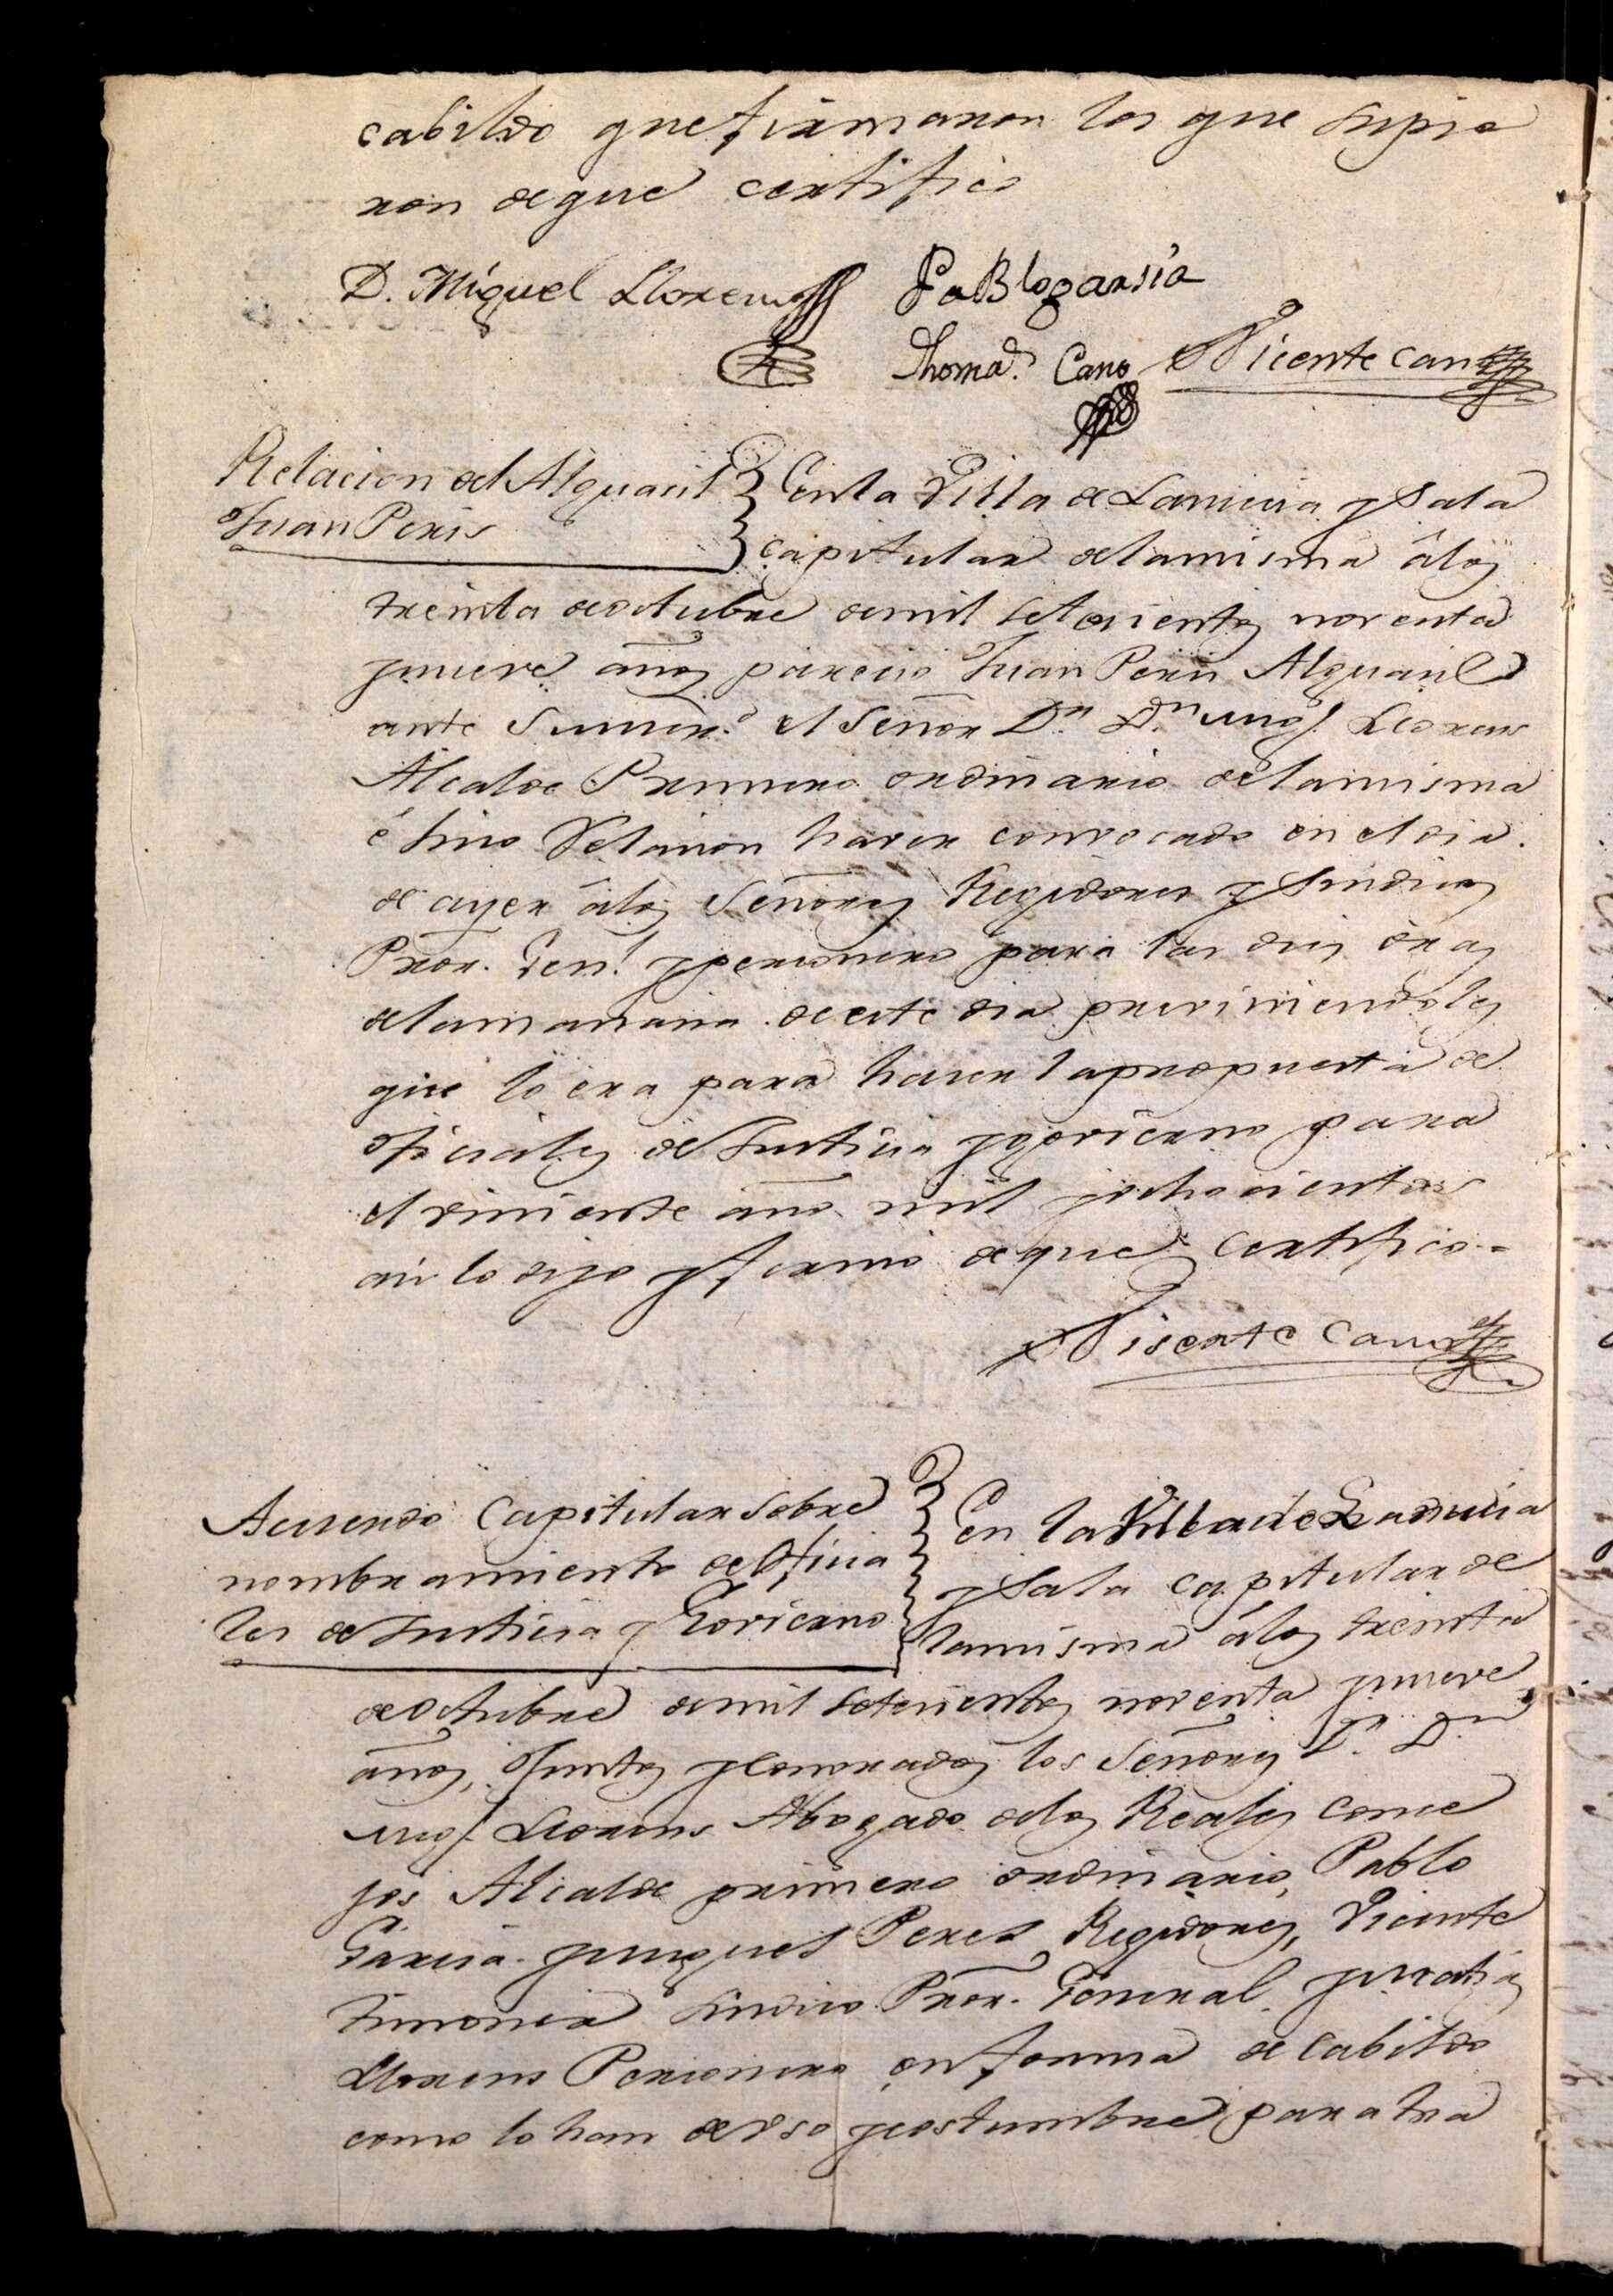 cabildo que firmaron los que supie
ron de que certifico
D. Miguel Llorens
PaBlo garsia
Thomas Cano
Vicente Cano
Relacion del Alguacil
Juan Peris
En la Villa de Lanucia y Sala
capitular de la misma â los
treinta de octubre de mil setecientos noventa
y nueve años parecio Juan Peris Alguacil
ante su mrd. el Señor Dr. Dn. Migl. Llorens
Alcalde Primero ordinario de la misma
é hizo Relacion haver convocado en el dia
de ayer â los Señores Regidores y Sindicos
Pror. Genl. y personero para las diez oras
de la mañana de este dia previniendoles
que lo era para hacer la propuesta de
oficiales de Justicia y govierno para
el viniente año mil y ochocientos
asi lo dijo y firmó de que certifico =
Visente Cano
Acuerdo Capitular sobre
nombramiento de Oficia
les de Justicia y Govierno
En la Villa de Lanucia
y Sala capitular de
la misma â los treinta
de octubre de mil setecientos noventa y nueve
años, Juntos y congregados los Señores Dr. Dn.
Migl. Llorens Abogado de los Reales conse
jos Alcalde primero ordinario, Pablo
Garcia y Miguel Perez Regidores, Vicente
Sindico Pror. General y Matias
Llorens Personero en forma de cabildo
como lo han de vso y costumbre para tra